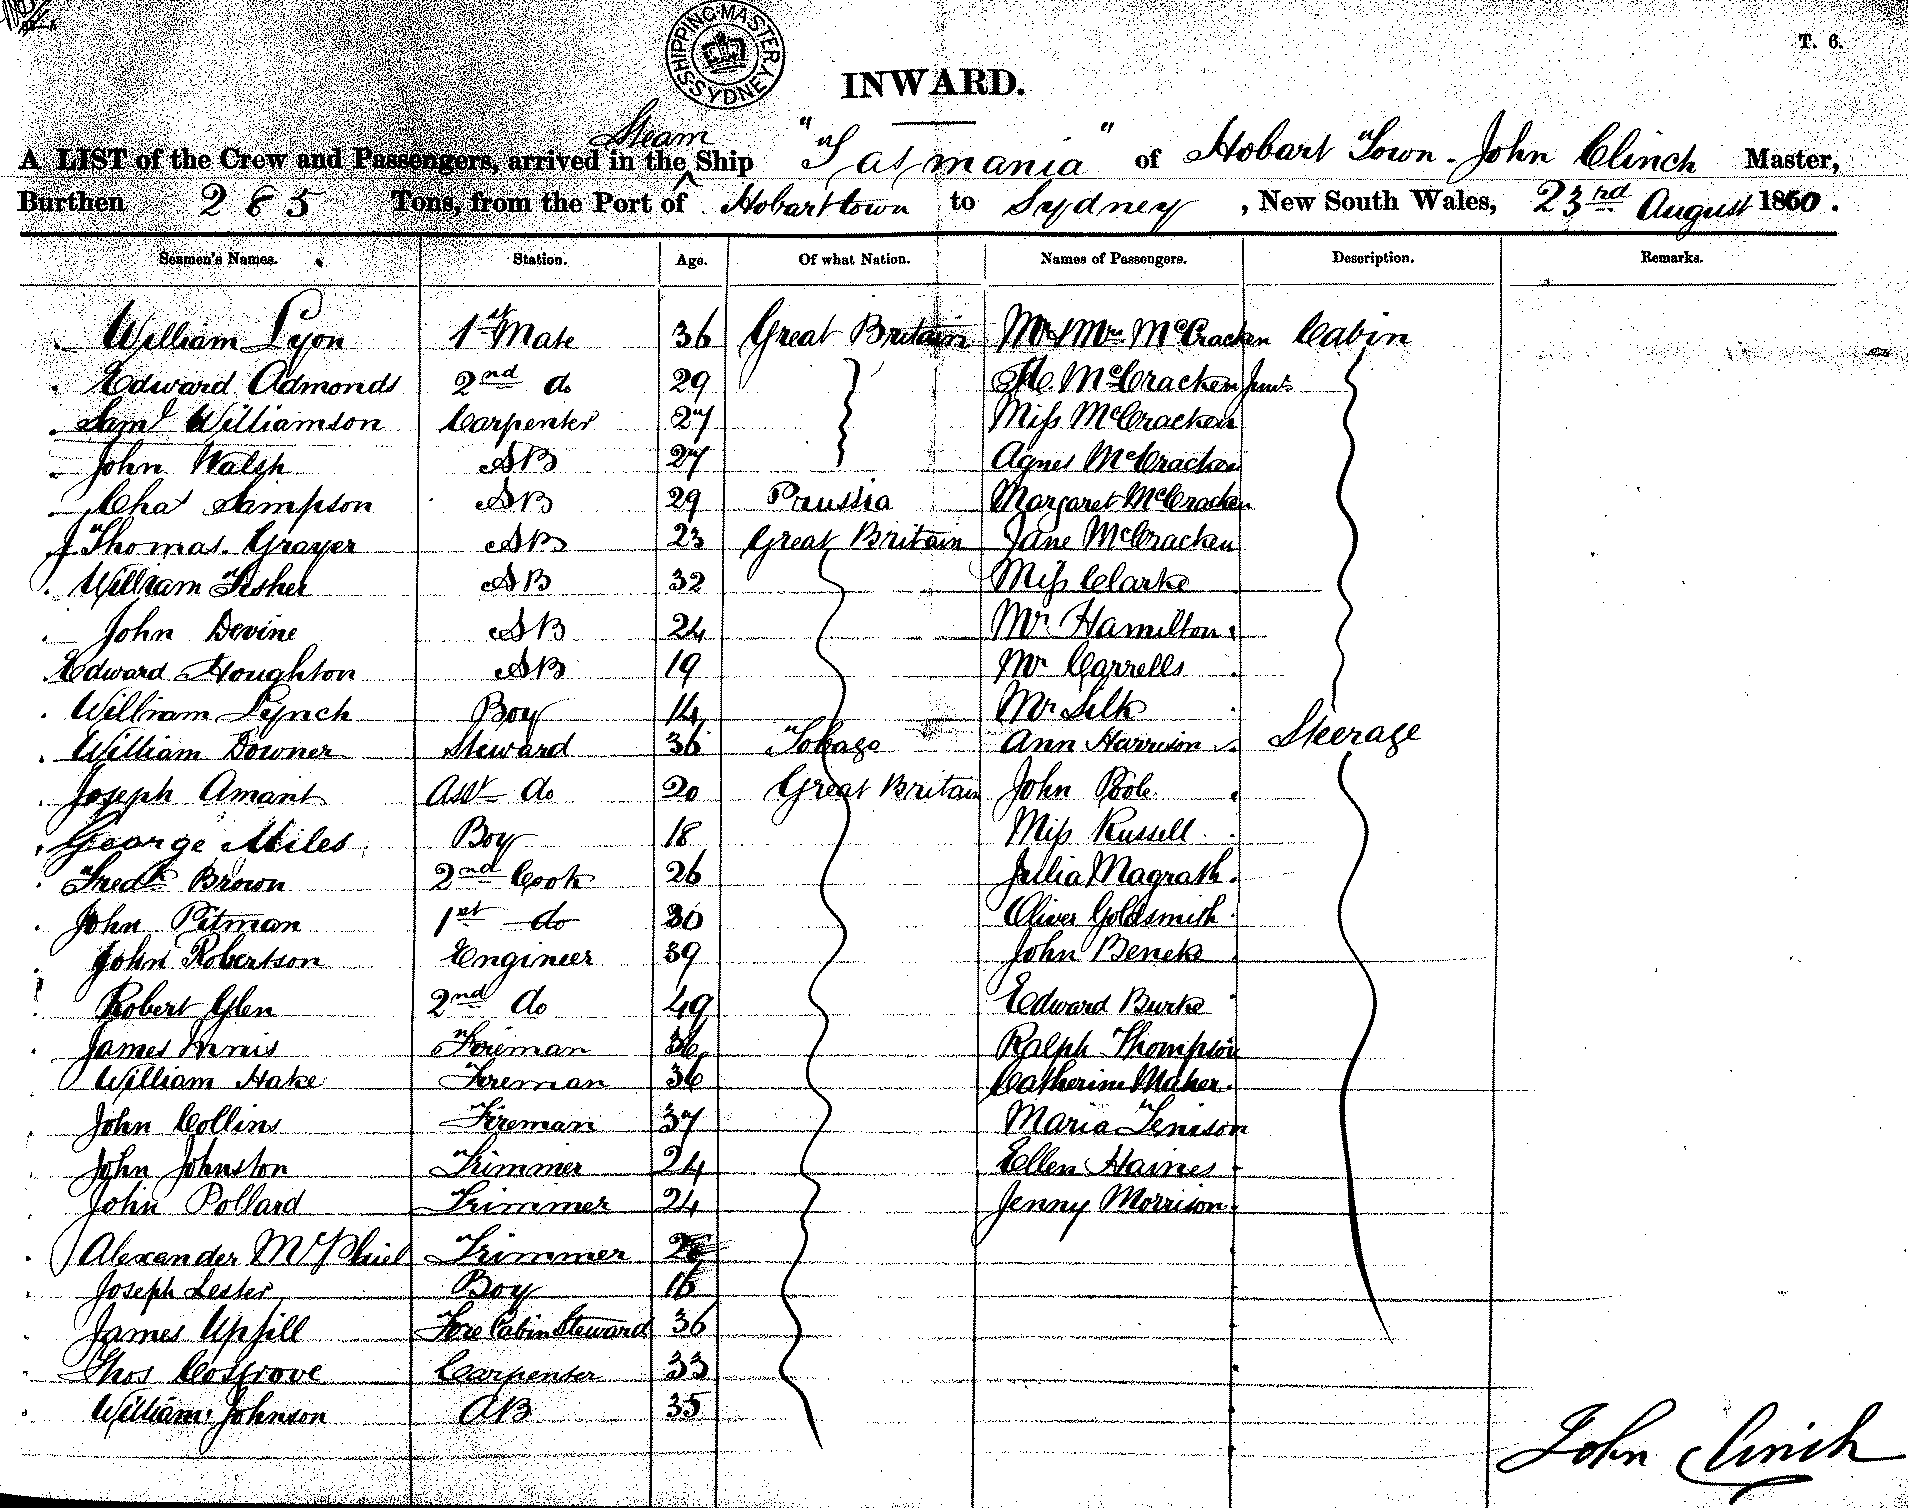 T. 6.
SHIPPING MASTER SYDNEY
INWARD.
Steam
A LIST of the Crew and Passengers, arrived in the Ship "Tasmania" of Hobart Town. John Clinch Master,
Burthen 285 Tons, from the Port of Hobarttown to Sydney, New South Wales, 23rd August 1860.
Seamen's Names. Station. Age. Of what Nation. Names of Passengers. Description. Remarks.
William Lyon 1st Mate 36 Great Britain Mr & Mrs McCracken Cabin
Edward Admonds 2nd do 29 McCracken Junr
Saml Williamson Carpenter 27 Miss McCracken
John Walsh AB 27 Agnes McCracken
Chas Sampson AB 29 Prussia Margaret McCracken
J. Thomas Grayer AB 23 Great Britain Jane McCracken
William Fisher AB 32 Miss Clarke
John Devine AB 24 Mr Hamilton
Edward Houghton AB 19 Mr Carrells
William Lynch Boy 14 Mr Silk
William Downer Steward 36 Tobago Ann Harrison Steerage
Joseph Amant Asst do 20 Great Britain John Poole
George Miles Boy 18 Miss Russell
Fredk Brown 2nd Cook 26 Julia Magrath
John Pitman 1st do 30 Oliver Goldsmith
John Robertson Engineer 39 John Beneke
Robert Glen 2nd do 49 Edward Burke
James Fireman 36 Ralph Thompson
William Hake Fireman 36 Catherine Maher
John Collins Fireman 37 Maria Tenison
John Johnston Trimmer 24 Ellen Haines
John Pollard Trimmer 24 Jenny Morrison
Alexander McPhiel Trimmer
Joseph Lester Boy 16
James Upfill Fore Cabin Steward 36
Thos Cosgrove Carpenter 33
William Johnson AB 35
John Clinch